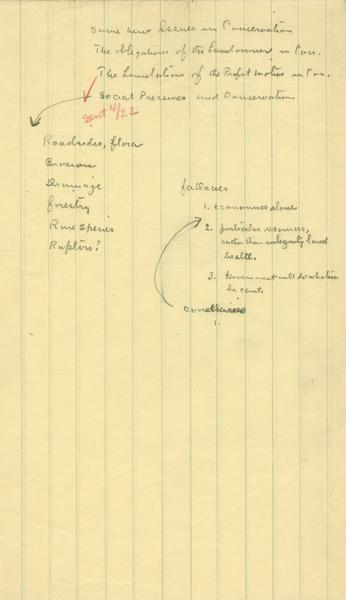 Some new Issues in Conservation
The obligations of the Landowner in Con.
The Limitations of the Profit Motive in Con.
Social Pressures and Conservation
sent 4/22
Roadsides, flora
Erosion
Drainage
Forestry
Rare Species
Raptors?
fallacies
1. economics alone
2. particular resources,
rather than integrity land
health.
3. Government will do what
he can't.
corollaries
1.